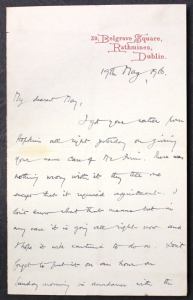 29, Belgrave Square,
Rathmines,
Dublin.
19th May, 1916.
My dearest May,
I got your watch from
Hopkins all right yesterday on giving
your name care of Mr. There was
nothing wrong with it they tell me
except that it required adjustment. I
don't know what that means but in
any case it is going all right now and
I hope it will continue to do so. Don't
forget to put it on an hour on
Sunday morning in accordance with the